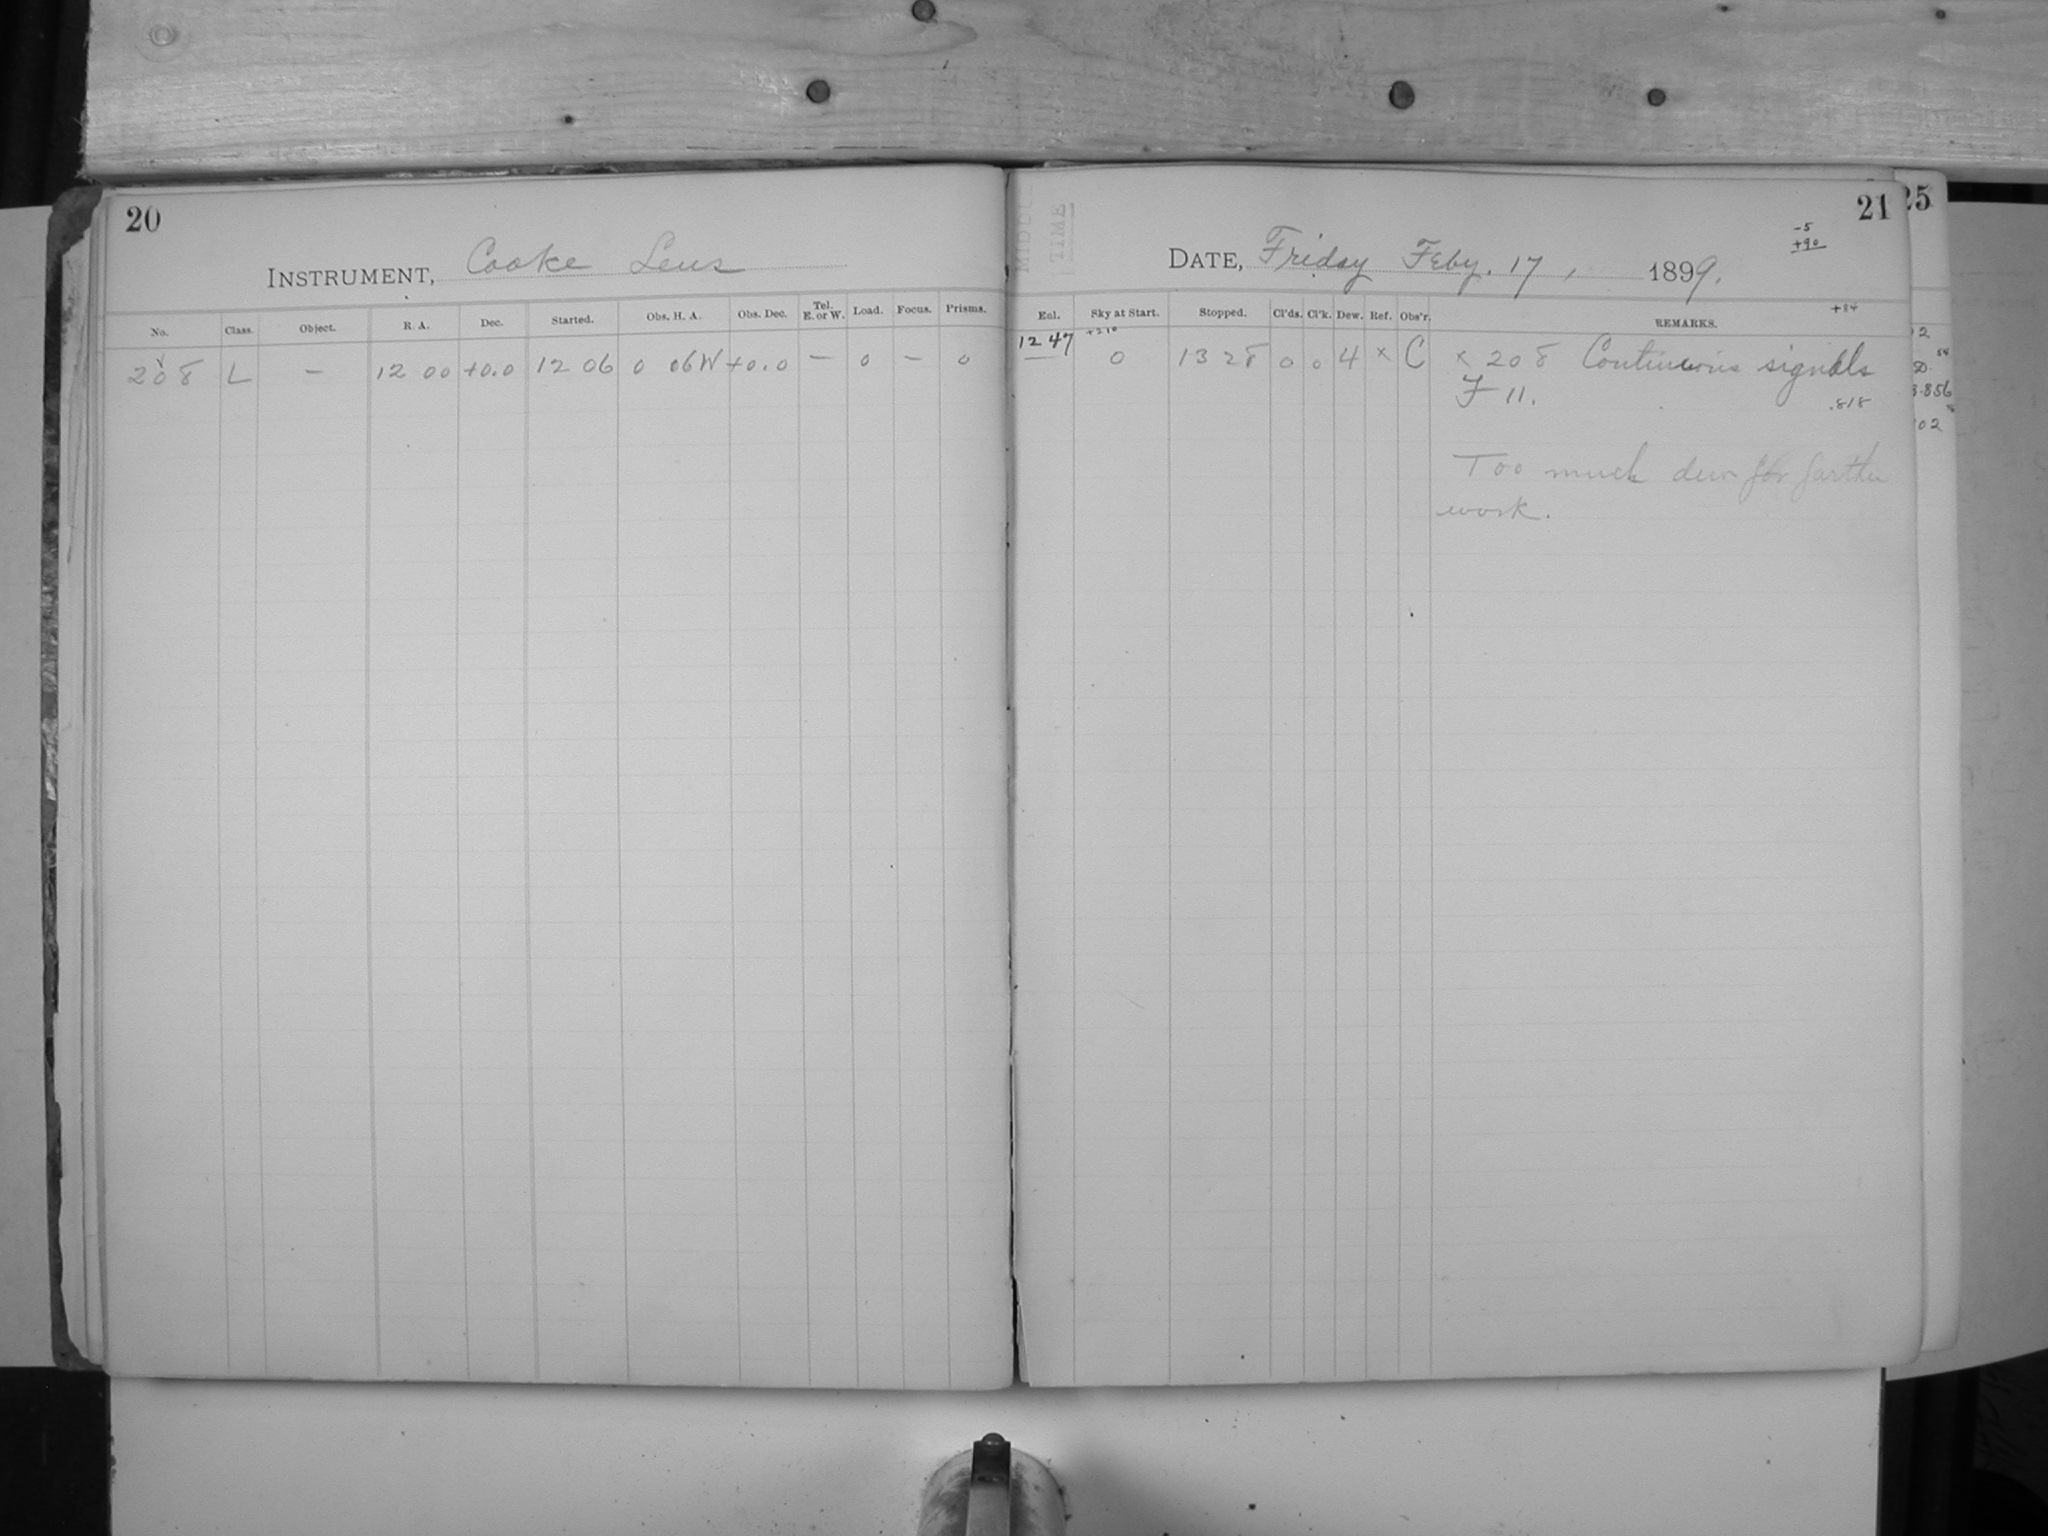 20
INSTRUMENT, Cooke Lens
No. Class. Object. R. A. Dec. Started. Obs. H. A. Obs. Dec. Tel. E. or W. Load. Focus. Prisms.
208 L – 12 00 +0.0 12 06 0 06W +0.0 – 0 – 0
21
-5
+90
DATE, Friday Feby. 17, 1899.
+84
Enl. Sky at Start. Stopped. Cl'ds. Cl'k. Dew. Ref. Obs'r. REMARKS.
12 47 +210
— 0 13 28 0 0 4 × C × 208 Continuous signals
F 11. .818
Too much dew for farther
work.
25
02
TIME